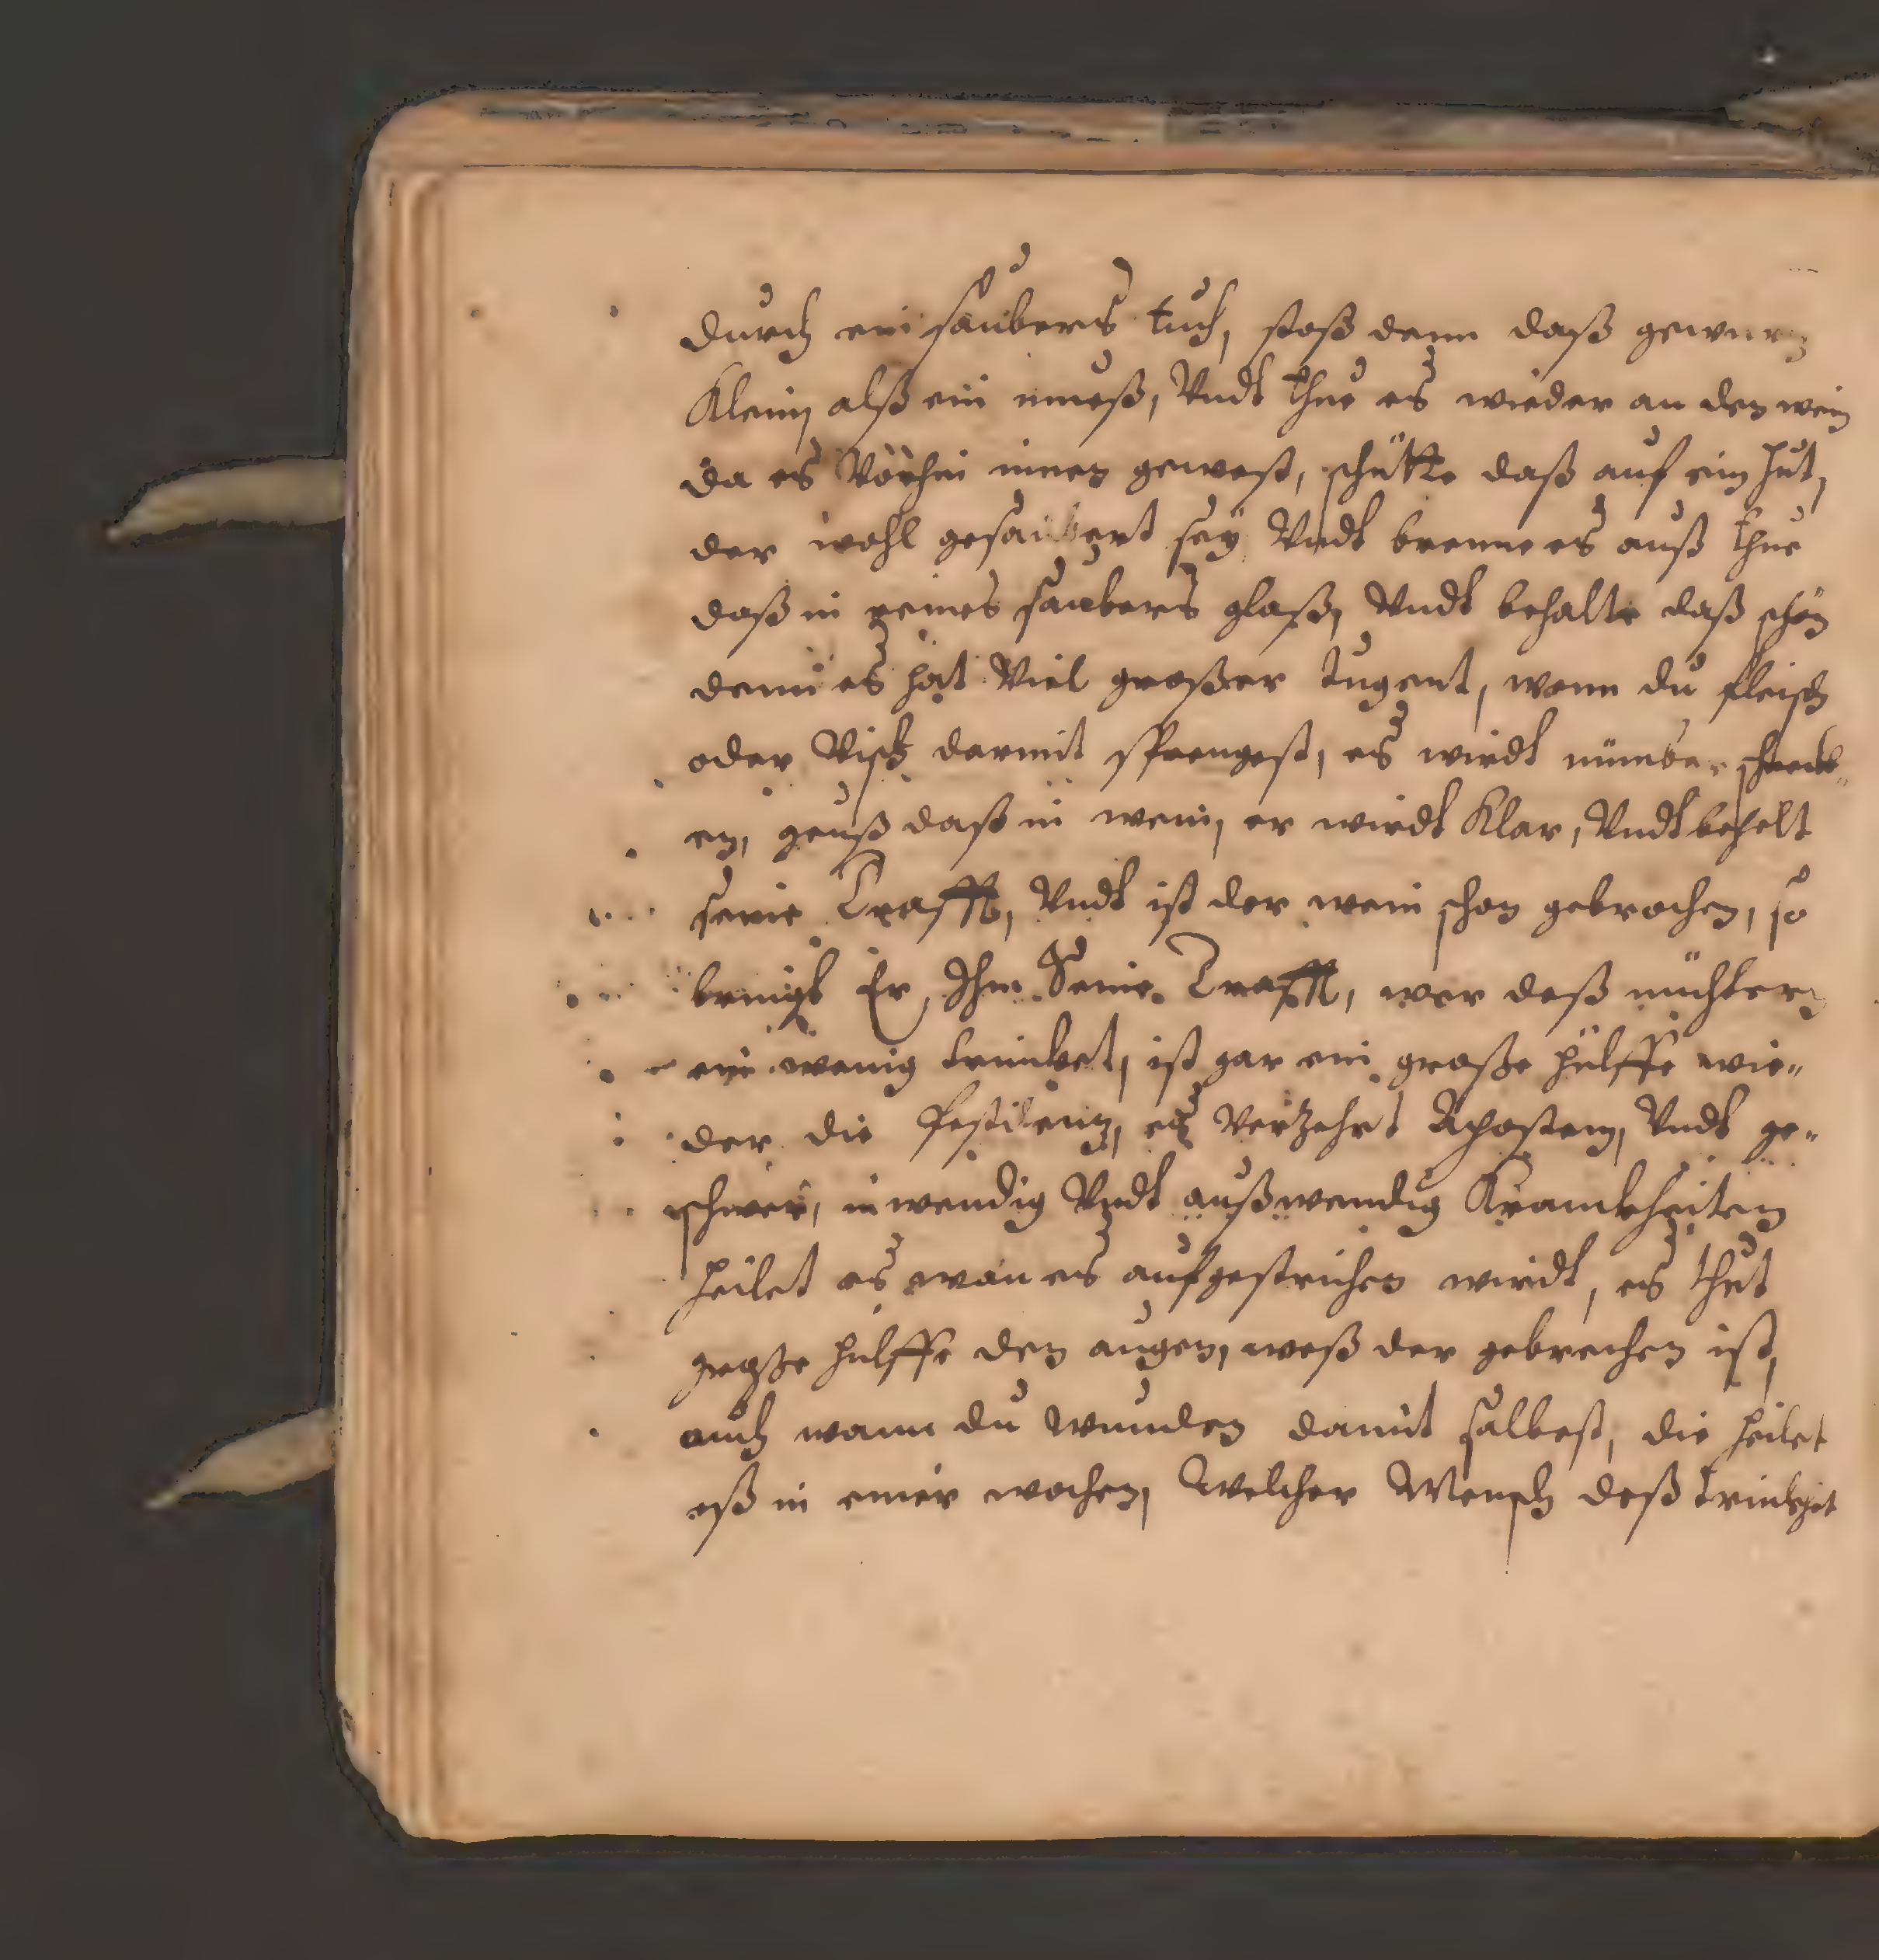 durch ein saubers tuch, stoß dann daß gewurz
Klein alß ein mueß, Vndt thue es wieder an den wein
da es Vorhin innen gewest, schütte daß auf ein hut,
der wohl gesaubert seÿ Vndt brenne es auß thue
daß in reines saubers glaß, Vndt behalte daß schon
denn es hat Viel großer tugent, wann du fleisch
oder Visch darmit sprengest, es wirdt nümber
en, geuß daß in wein, er wirdt Klar, Vndt behelt
seine Crafft, Vndt ist der wein schon gebrochen, so
bringt Er Ihm Seine Crafft, wer daß nüchtern
ein wenig trincket, ist gar ein große hülffe wie-
der die pestilentz, es Verzehrt Apostem, Vndt ge-
schwer, inwendig Vndt außwendig Kranckheiten
heilet es wan es aufgestrichen wirdt, es thut
große hulffe den augen, waß der gebrechen ist,
auch wann du wunden damit salbest, die heilet
eß in einer wochen, Welcher Mensch daß trincket